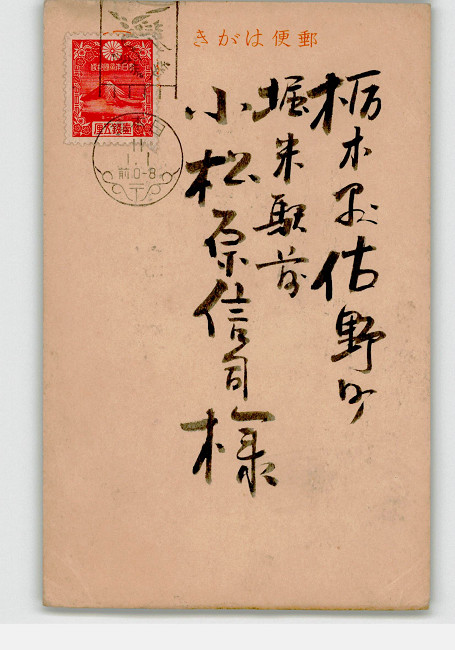 きがは便郵
栃木県佐野町
堀米駅前
小松原信司様
大日本帝國郵便
壹錢五厘
11
1.1
前0-8